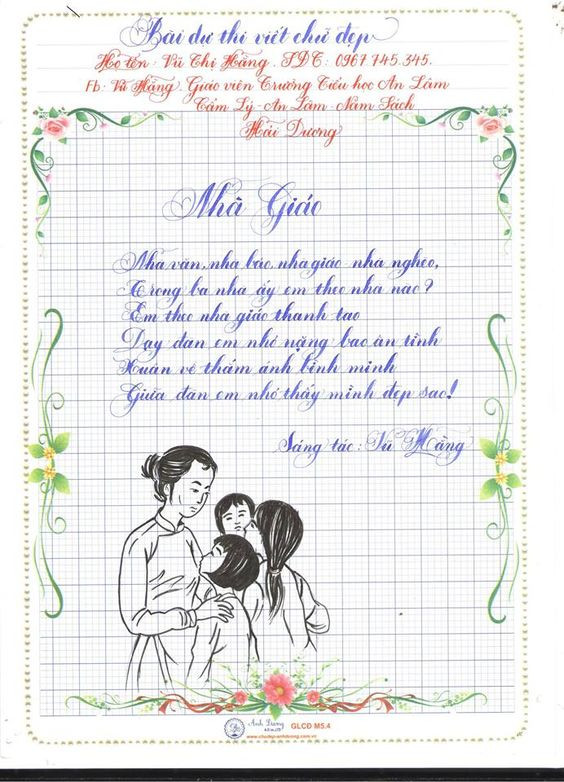 Bài dự thi viết chữ đẹp
Họ tên: Vũ Thị Hằng. SĐT: 0967.745.345.
Fb: Vũ Hằng. Giáo viên Trường Tiểu học An Lâm
Cẩm Lý - An Lâm - Nam Sách
Hải Dương
Nhà Giáo
Nhà văn, nhà báo, nhà giáo nhà nghèo,
Trong ba nhà ấy em theo nhà nào?
Em theo nhà giáo thanh tao
Dạy đàn em nhỏ nặng bao ân tình
Xuân về thắm ánh bình minh
Giữa đàn em nhỏ thấy mình đẹp sao!
Sáng tác: Vũ Hằng
Ánh Dương
GLCĐ M5.4
www.chudepanhduong.com.vn